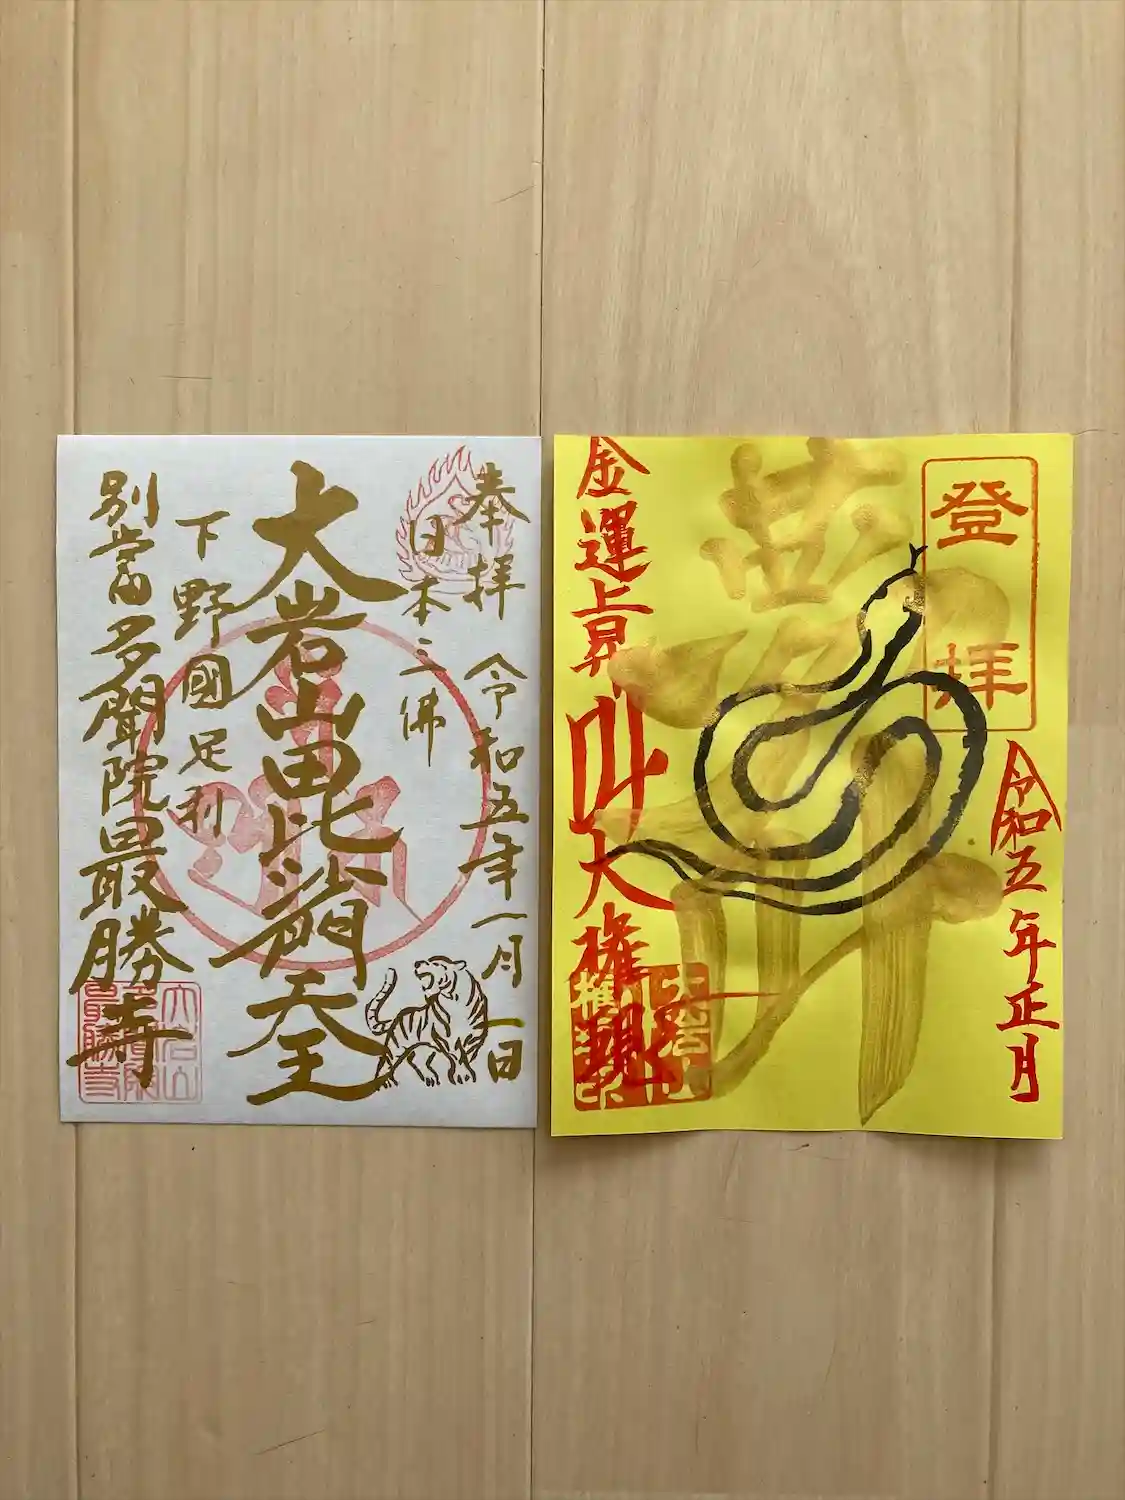 奉拝 令和五年一月一日
日本三佛
大岩山毘沙門天
下野國足利
別當多聞院最勝寺
登拝
令和五年正月
金運上昇
叶大権現